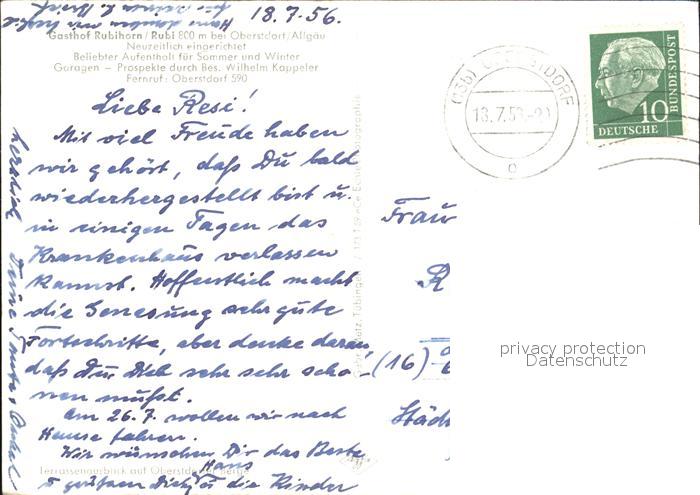 18.7.56.
Gasthof Rubihorn / Rubi 800 m bei Oberstdorf/Allgäu
Neuzeitlich eingerichtet
Beliebter Aufenthalt für Sommer und Winter
Garagen – Prospekte durch Bes. Wilhelm Kappeler
Fernruf: Oberstdorf 590
Liebe Resi!
Mit viel Freude haben
wir gehört, daß Du bald
wiederhergestellt bist u.
in einigen Tagen das
Krankenhaus verlassen
kannst. Hoffentlich macht
die Genesung sehr gute
Fortschritte, aber denke daran,
daß Du Dich sehr sehr scho-
nen mußt.
Am 26.7. wollen wir nach
Hause fahren.
Wir wünschen Dir das Beste
u grüßen Dich, Hans u die Kinder
herzlich Deine Tante u Onkel
Terrassenausblick auf Oberstdorfer Berge
OBERSTDORF
18.7.56
c
10
DEUTSCHE
BUNDESPOST
Frau
R
(16)
Städ
privacy protection
Datenschutz